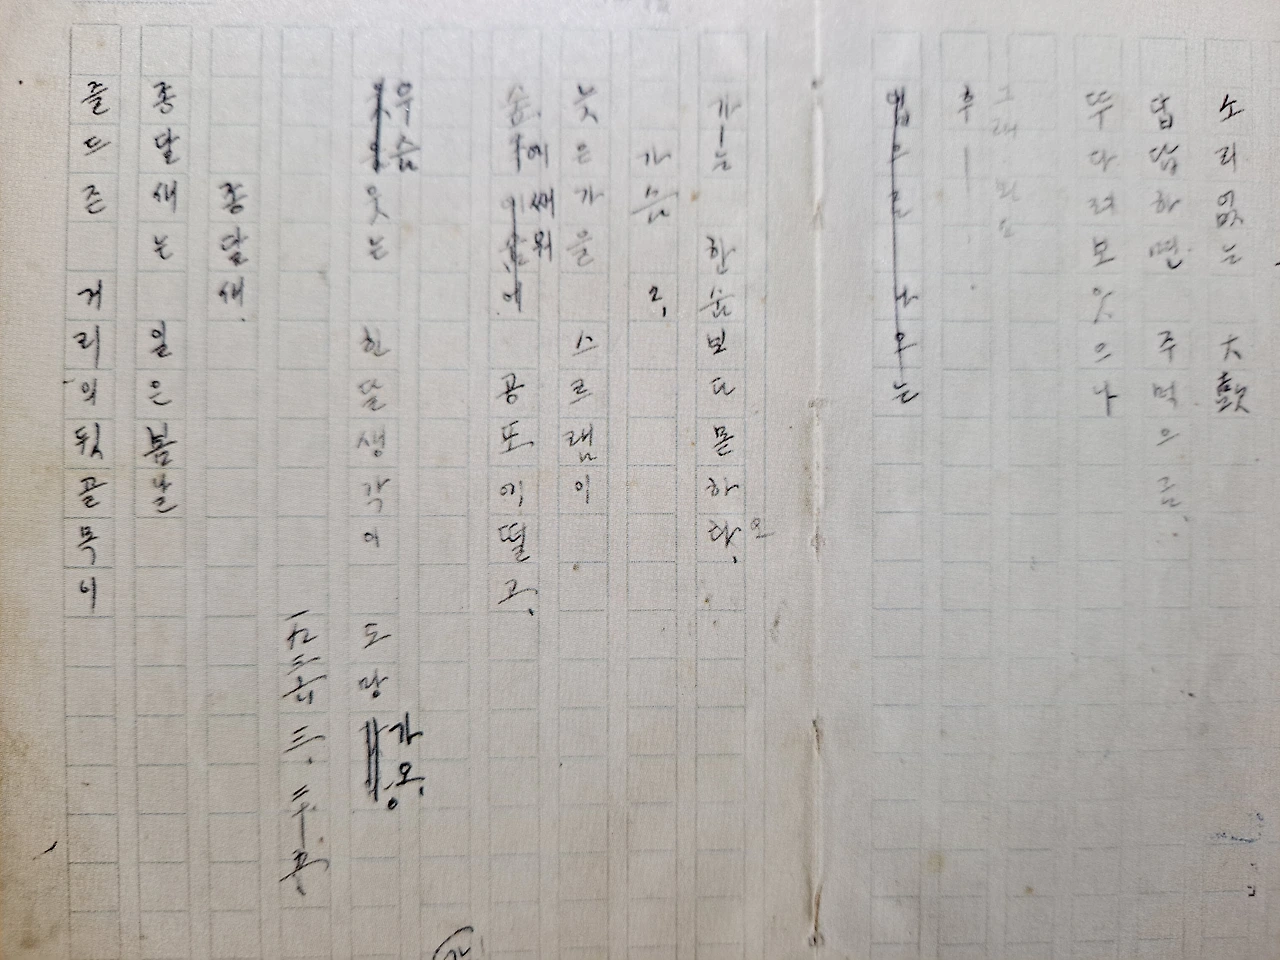 소리없는 大鼓
답답하면 주먹으로
뚜다려보앗으나
그래 봐도
후ㅡ
가ㅡ는 한숨보다 몯하오
가슴 2.
늦은 가을 스르램이
숲에 쌔워 공포에 떨고,
우슴 웃는 한달생각이 도망가오.
종달새
종달새는 일은봄날
즐드즌 거리의뒷골목이